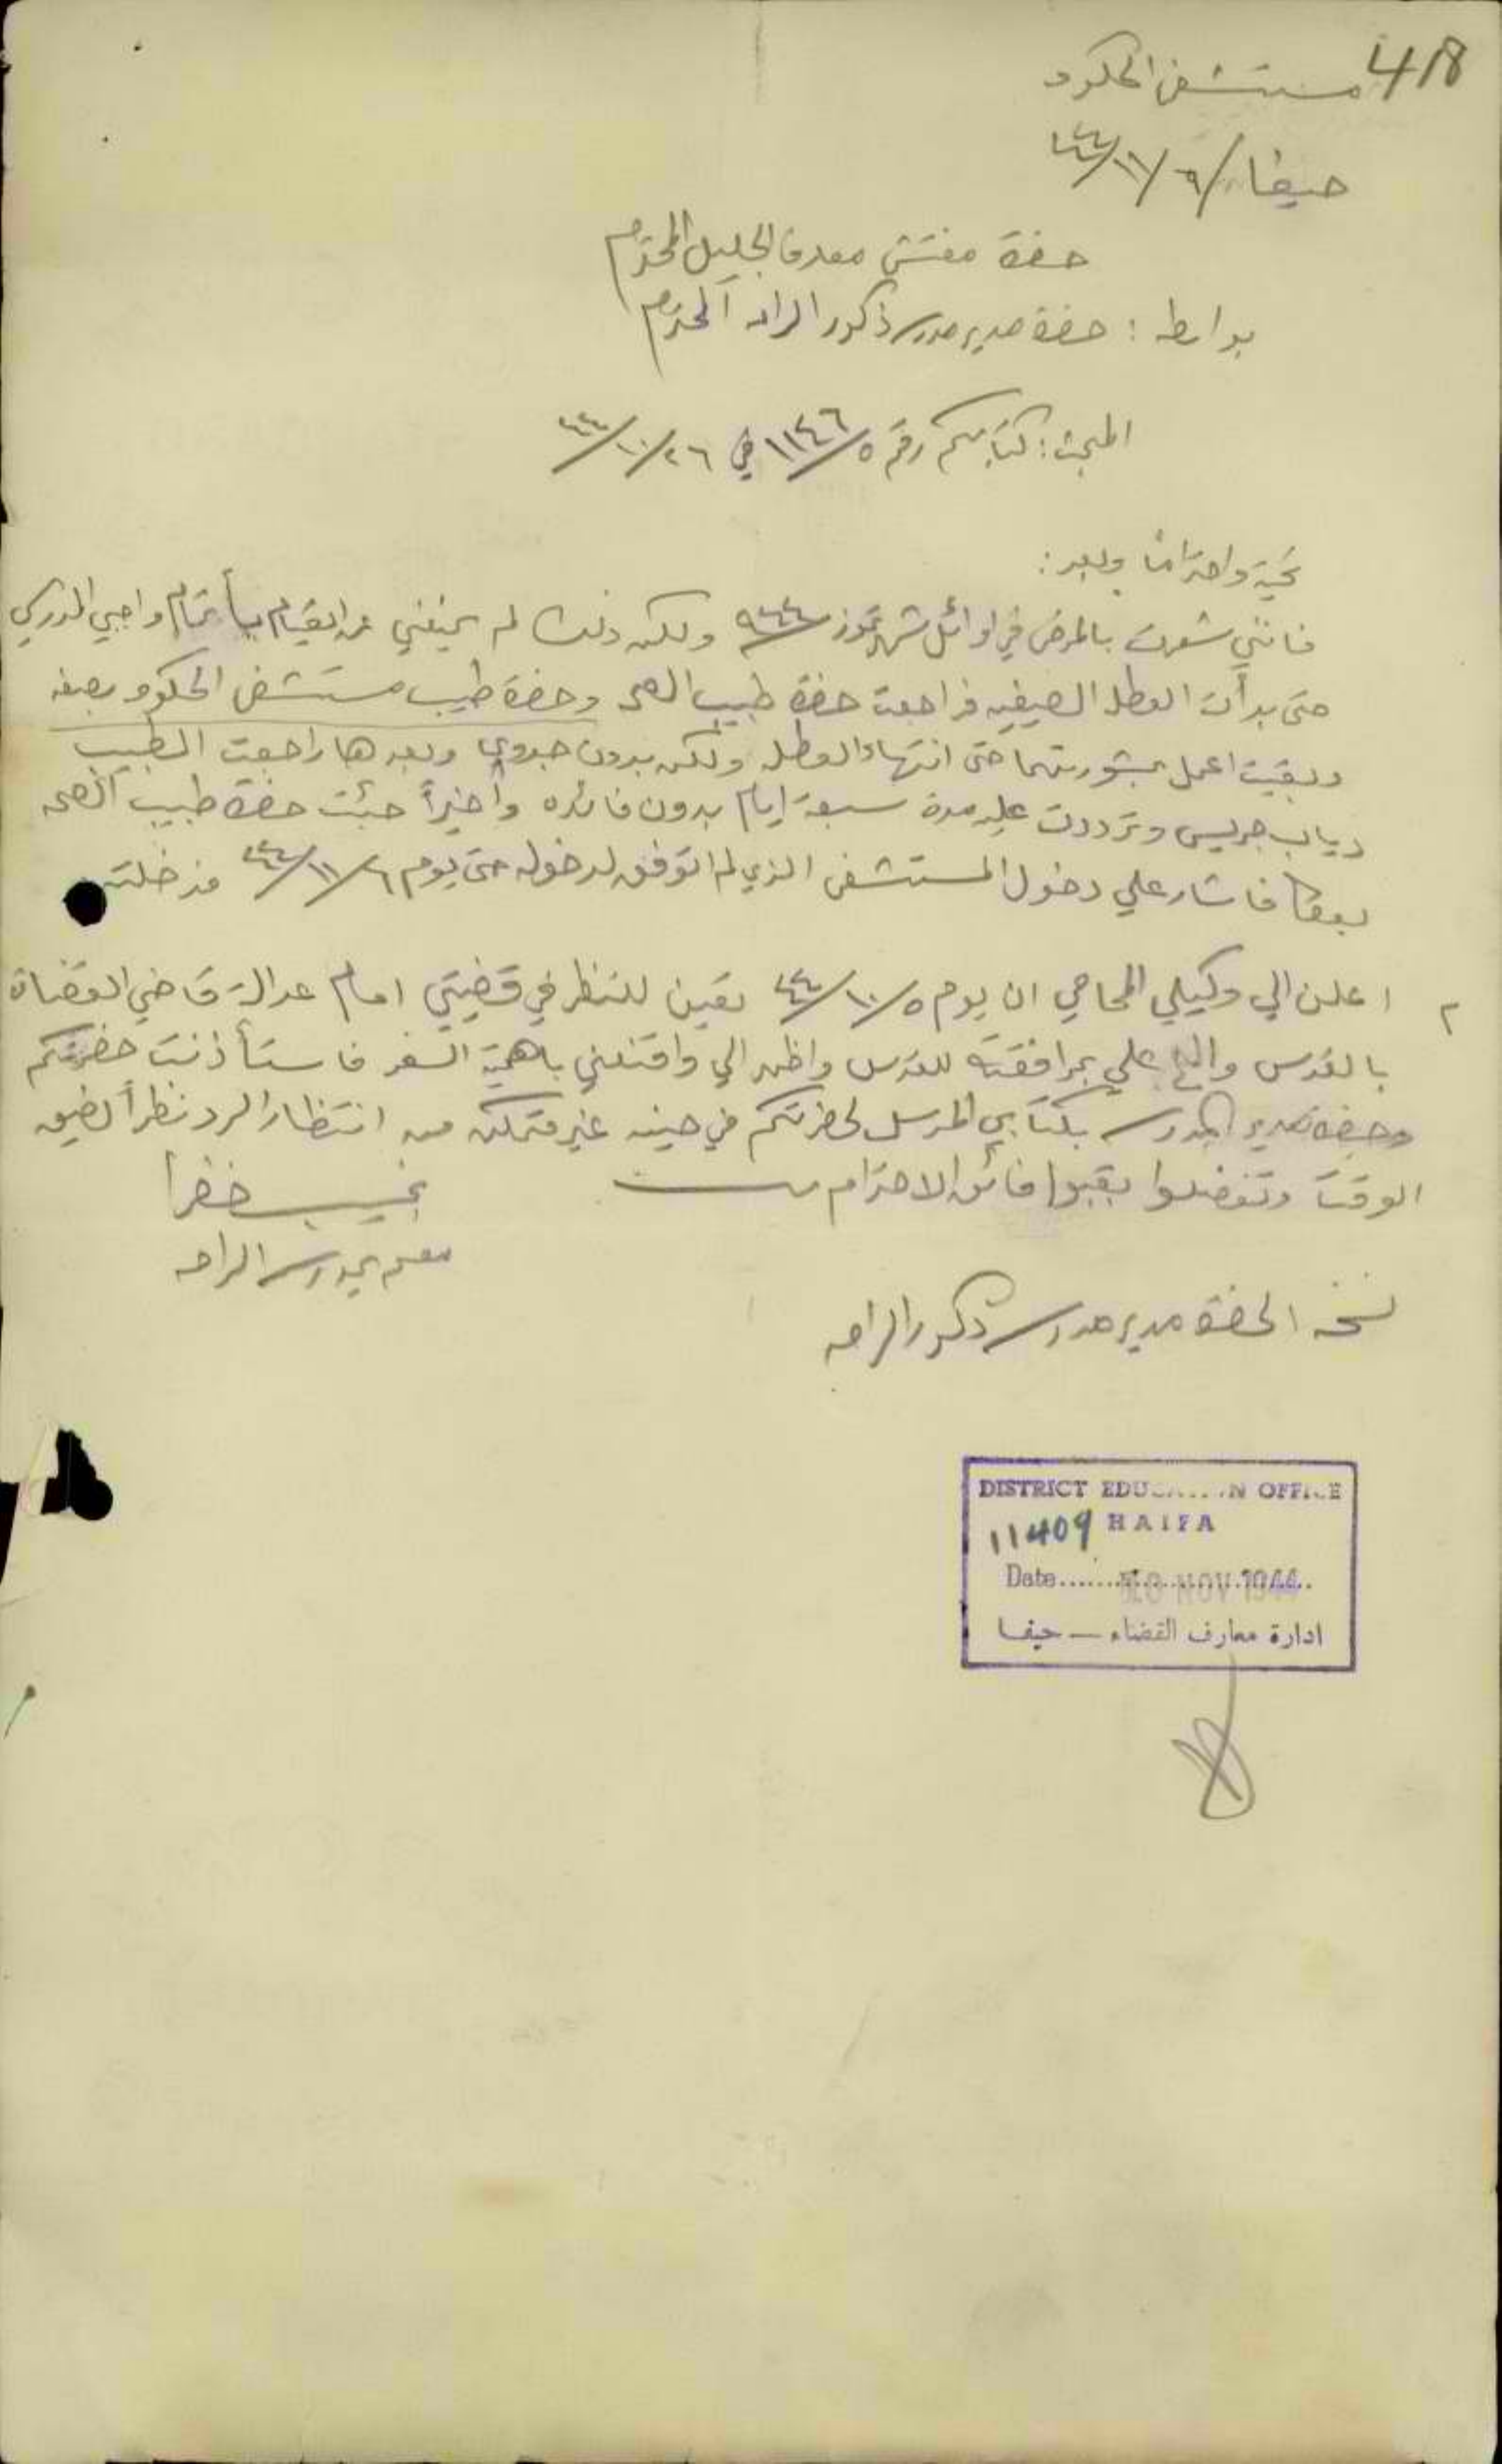 418
مستشفى الحكومه
حيفا ٩/١١/٤٤
حضرة مفتش معارف الجليل المحترم
بواسطة : حضرة مدير مدرسة ذكور الرامه المحترم
المبحث : كتابكم رقم ١١٤٦/٥ في ٢٦/١٠/٤٤
تحية واحتراما وبعد :
فانني شعرت بالمرض في اوائل شهر تموز ٩٤٤ ولكن ذلك لم يمنعني عن القيام بأتمام واجبي المدرسي
حتى بدأت العطلة الصيفيه فراجعت حضرة طبيب الصحه وحضرة طبيب مستشفى الحكومه بصفد
وبقيت اعمل بمشورتهما حتى انتهاء العطله ولكن بدون جدوى وبعدها راجعت الطبيب
دياب جريس وترددت عليه مدة سبعة ايام بدون فائده وأخيراً جئت حضرة طبيب الصحه
بعكا فاشار علي دخول المستشفى الذي لم اتوفق لدخوله حتى يوم ٦/١١/٤٤ فدخلته
٢ اعلن الي وكيلي المحامي ان يوم ٥/١٠/٤٤ تعين للنظر في قضيتي امام عدالة قاضي القضاة
بالقدس والح علي بمرافقته للقدس واظهر الي واقنعني بأهمية السفر فاستأذنت حضرتكم
وحضرة مدير المدرسه بكتابي المرسل لحضرتكم في حينه غير متمكن من انتظار الرد نظراً لضيق
الوقت وتفضلوا بقبول فائق الاحترام
نجيب خضرا
معلم بمدرسة الرامه
نسخه الى حضرة مدير مدرسة ذكور الرامه
DISTRICT EDUCATION OFFICE
HAIFA
11409
Date NOV 1944
ادارة معارف القضاء — حيفا